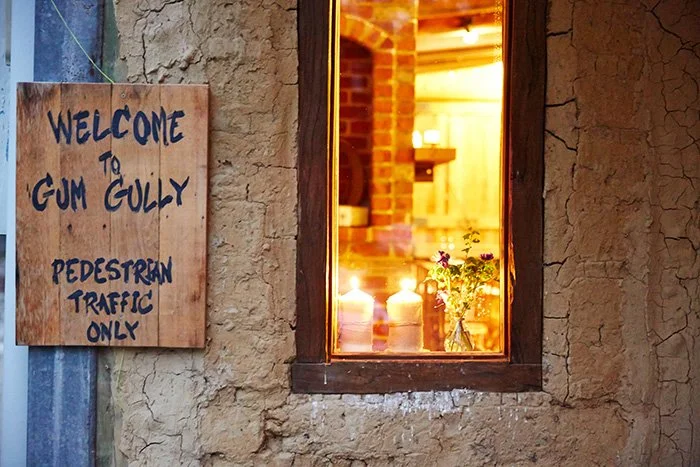 WELCOME
TO
GUM GULLY
PEDESTRIAN
TRAFFIC
ONLY